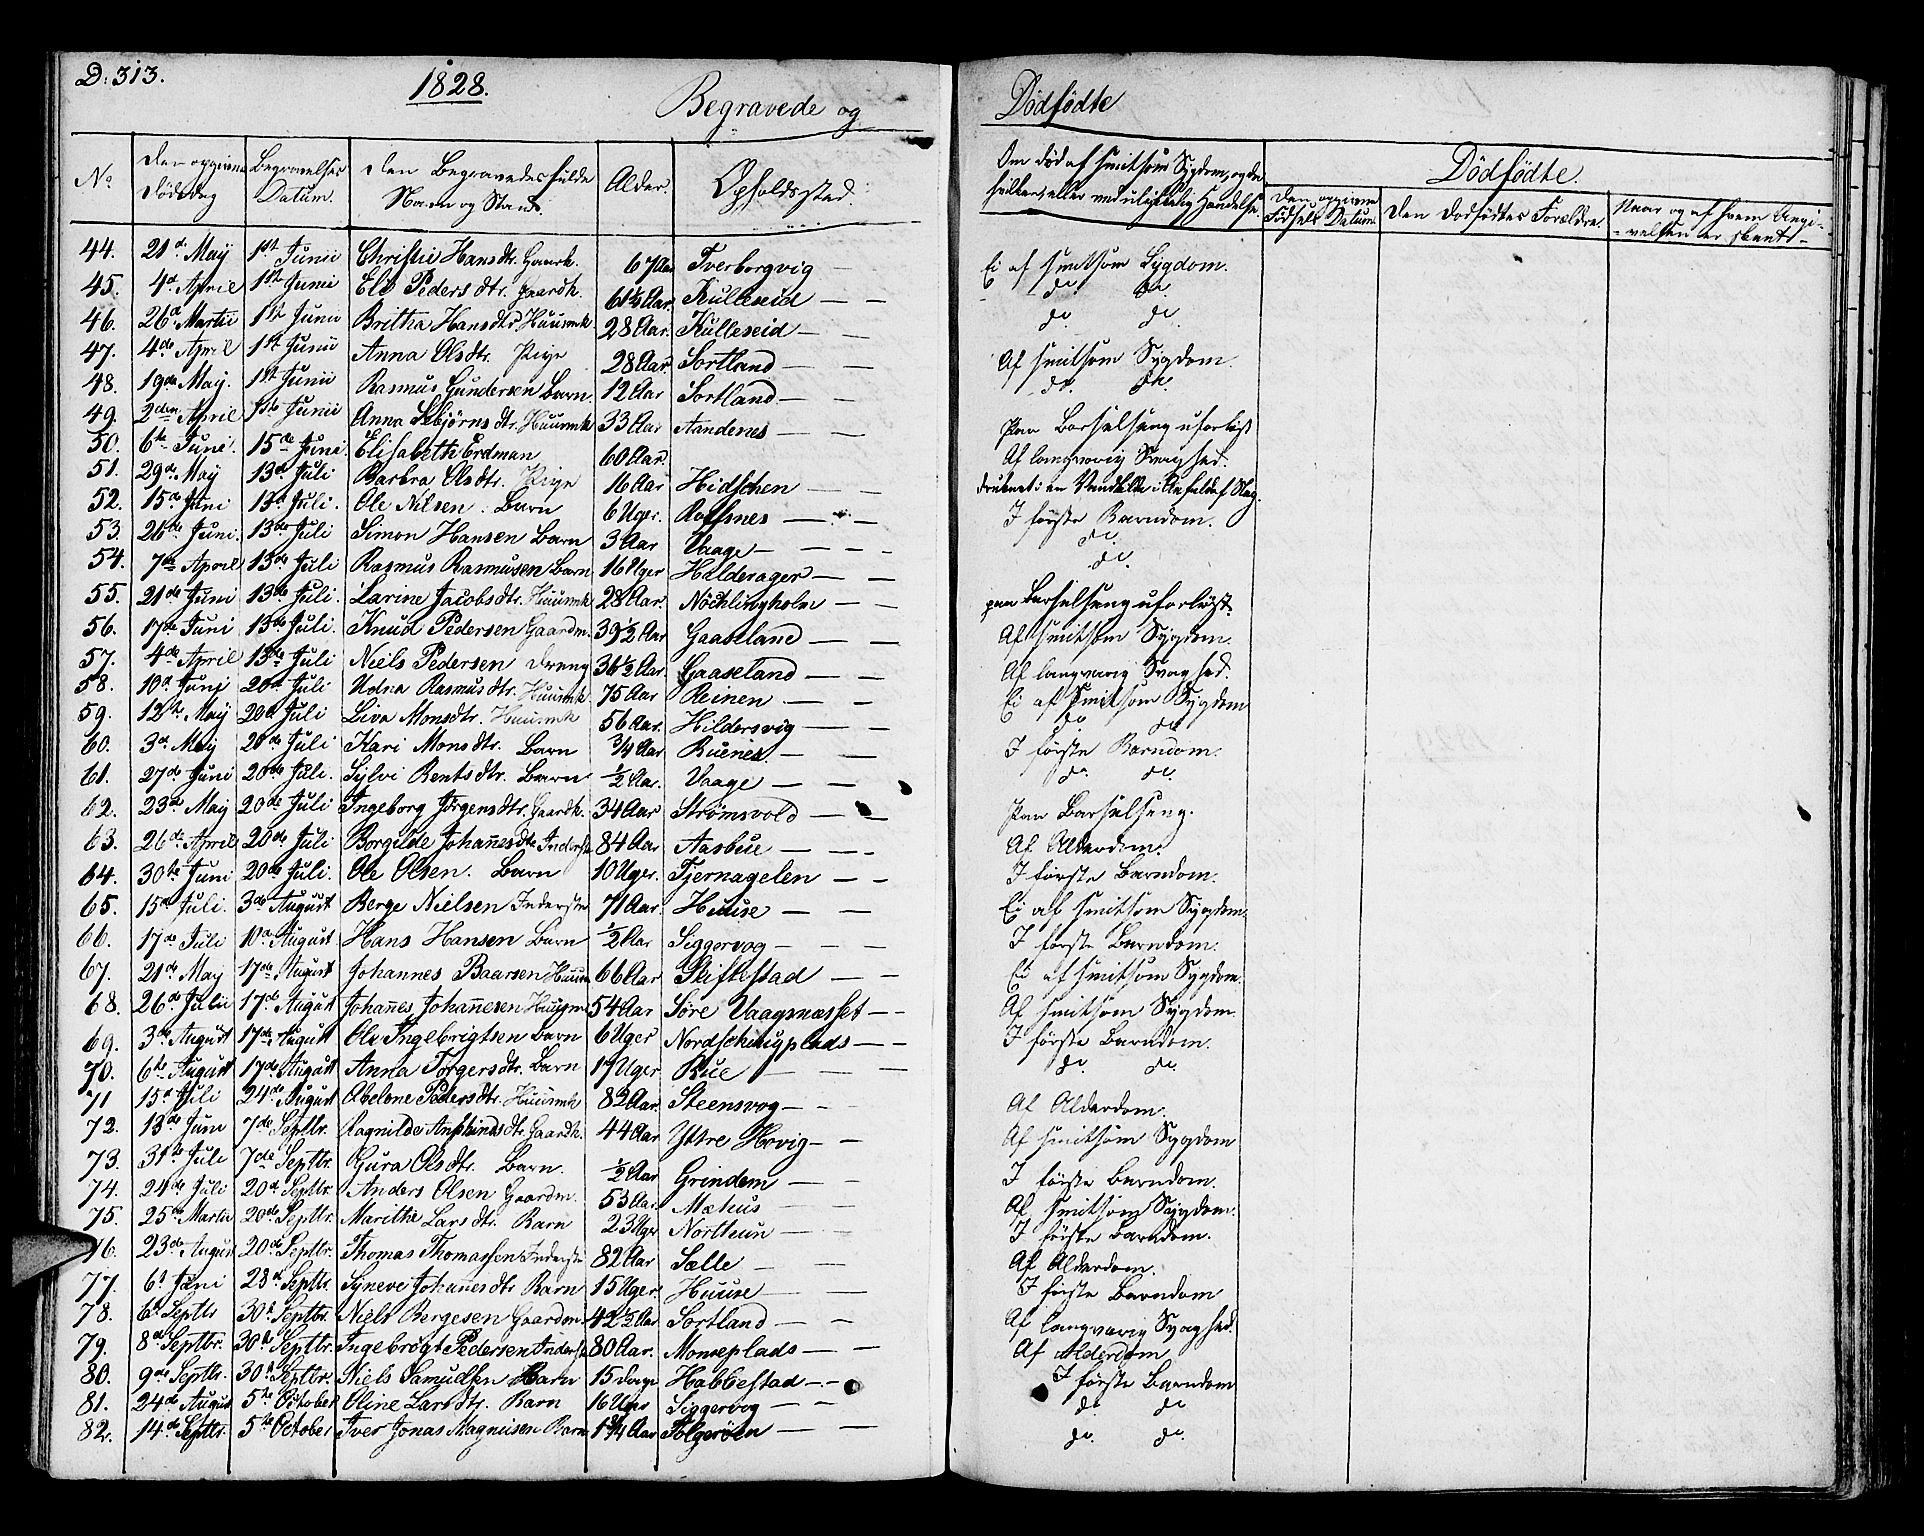 D. 313.
1828.
Begravede og
Dödfödte
No
Den opgivne Dödsdag
Begravelses Datum.
Den Begravedes fulde Navn og Stand.
Alder.
Opholdssted.
Om död af smitsom Sygdom, og da hvilken, eller ved ulykkelig Hændelse.
Dödfödte.
Den opgivne Födsels Datum
Den Dödfödtes Forældre.
Naar og af hvem Angivelsen er skeet
44. 21d. Maÿ 1st Junii Christie Hansdtr. Gaardk. 67 Aar Tverborgvig — Ei af smitsom Sygdom.
45. 4d. April 1st Junii Els Pedersdtr. Gaardk. 61½ Aar. Kulleseid — — do. do.
46. 26d. Martii 1st Junii Britha Hansdtr. Huusmk. 28 Aar. Kulleseid — do. do.
47. 4de April 1st Junii Anna Olsdtr. Pige 28 Aar Sortland — — Af smitsom Sygdom.
48. 19de Maÿ. 1st Junii Rasmus Gundersen Barn. 12 Aar Sortland — — do. do.
49. 2den April 1ste Junii Anna Asbjörnsdtr. Huusmk 33 Aar Aandenes — — Paa Barselseng uforlöst
50. 6te Juni. 15de Juni. Elisabeth Erdman 60 Aar. Af langvarig Svaghed.
51. 29de Maÿ 13de Juli Barbra Olsdtr. Pige 16 Aar Hidschen — — druknet i en
52. 15de Juni 13de Juli. Ole Nilsen. Barn 6 Uger. Rolfsnes — — I förste Barndom.
53. 26de Juni. 13de Juli Simon Hansen Barn 3 Aar Vaage — — — do.
54. 7de April 13de Juli Rasmus Rasmusen Barn 16 Uger Hilderager — — do.
55. 21de Juni 13de Juli. Larine Jacobsdtr. Huusmk 28 Aar. Nöchlingholm — — paa Barselseng uforlöst.
56. 17de Juni 13de Juli. Knud Pedersen Gaardm. 39½ Aar Gaaseland — — Af smitsom Sygdom.
57. 4de April 13de Juli Niels Pedersen Dreng 36½ Aar. Gaaseland — — Af langvarig Svaghed.
58. 10d Juni 20de Juli Udna Rasmusdtr. Huusmk. 75 Aar Reinen — — Ei af Smitsom Sygdom
59. 12te Maÿ 20d Juli Liva Monsdtr. Huusmk 56 Aar. Hildersvig — — do. do.
60. 3de Maÿ 20de Juli Kari Monsdtr. Barn ¾ Aar Ruenes — — I förste Barndom.
61. 27de Juni 20de Juli. Sylvi Bentsdtr. Barn ½ Aar. Vaage — — do. do.
62. 23de Maÿ 20de Juli Ingeborg Jörgensdtr. Gaardk. 34 Aar Strømsvold — — Paa Barselseng.
63. 26de April 20de Juli Borgilde Johan̄esdtr Inderste 84 Aar Aasbue — — Af Alderdom.
64. 30te Juni 20de Juli. Ole Olsen. Barn 10 Uger. Tjernagelen — — I förste Barndom.
65. 15de Juli. 3de August Berge Nielsen Inderste 71 Aar. Huuse — — Ei af smitsom Sygdom.
66. 17de Juli 10d August Hans Hansen Barn ½ Aar Siggervog — — I förste Barndom.
67. 21de Maÿ 17de August Johannes Baarsen Huusm 66 Aar Skiftestad — — Ei af smitsom Sygdom.
68. 26de Julii 17d. August Johan̄es Johan̄esen Huusm 54 Aar Søre Vaagsnæsset — — Af smitsom Sygdom.
69. 3de August 17de August Ole Ingebrigtsen Barn 6 Uger Nordschougplads — — I förste Barndom.
70. 6te August 17de August Anna Torgersdtr. Barn 17 Uger Rue — — — do. do.
71 15d Juli 24de August Abelone Pedersdtr. Huusmk 82 Aar. Steensvog — — Af Alderdom.
72. 13de Juni 7de Septbr. Ragnilde Amphindsdtr. Gaardk. 44 Aar Ystre Hovig — — Af smitsom Sygdom
73. 31te Juli 7de Septbr. Gura Olsdtr. Barn. ½ Aar Grindem — — I förste Barndom.
74. 24de Juli 20d. Septbr. Anders Olsen Gaardm. 53 Aar. Mæhus — — Af smitsom Sygdom.
75. 25de Martii 20de Septbr. Maritha Larsdtr. Barn 23 Uger Nortuun — — I förste Barndom.
76. 23de August 20de Septbr. Thomas Thomassen Inderste 82 Aar Sælle — — Af Alderdom.
77. 6t Juni 28d Septbr. Synneve Johan̄esdtr Barn 15 Uger. Huuse — — I förste Barndom
78. 6t Septbr 30te Septbr. Niels Bergesen Gaardm. 42½ Aar Sortland — — Af langvarig Svaghed.
79. 8de Septbr. 30te Septbr. Ingebrögt Pedersen Inderste 80 Aar. Monseplads — — Af Alderdom
80. 9de Septbr. 30te Septbr. Niels Samuelsen Barn 15 Dage Habbestad — — I förste Barndom
81. 24de August 5te October Oline Larsdtr. Barn 16 Uger Siggervog — — do. do.
82. 14de Septbr. 5te October Iver Jonas Magnusen Barn 1¾ Aar Folgerøen — — do. do.